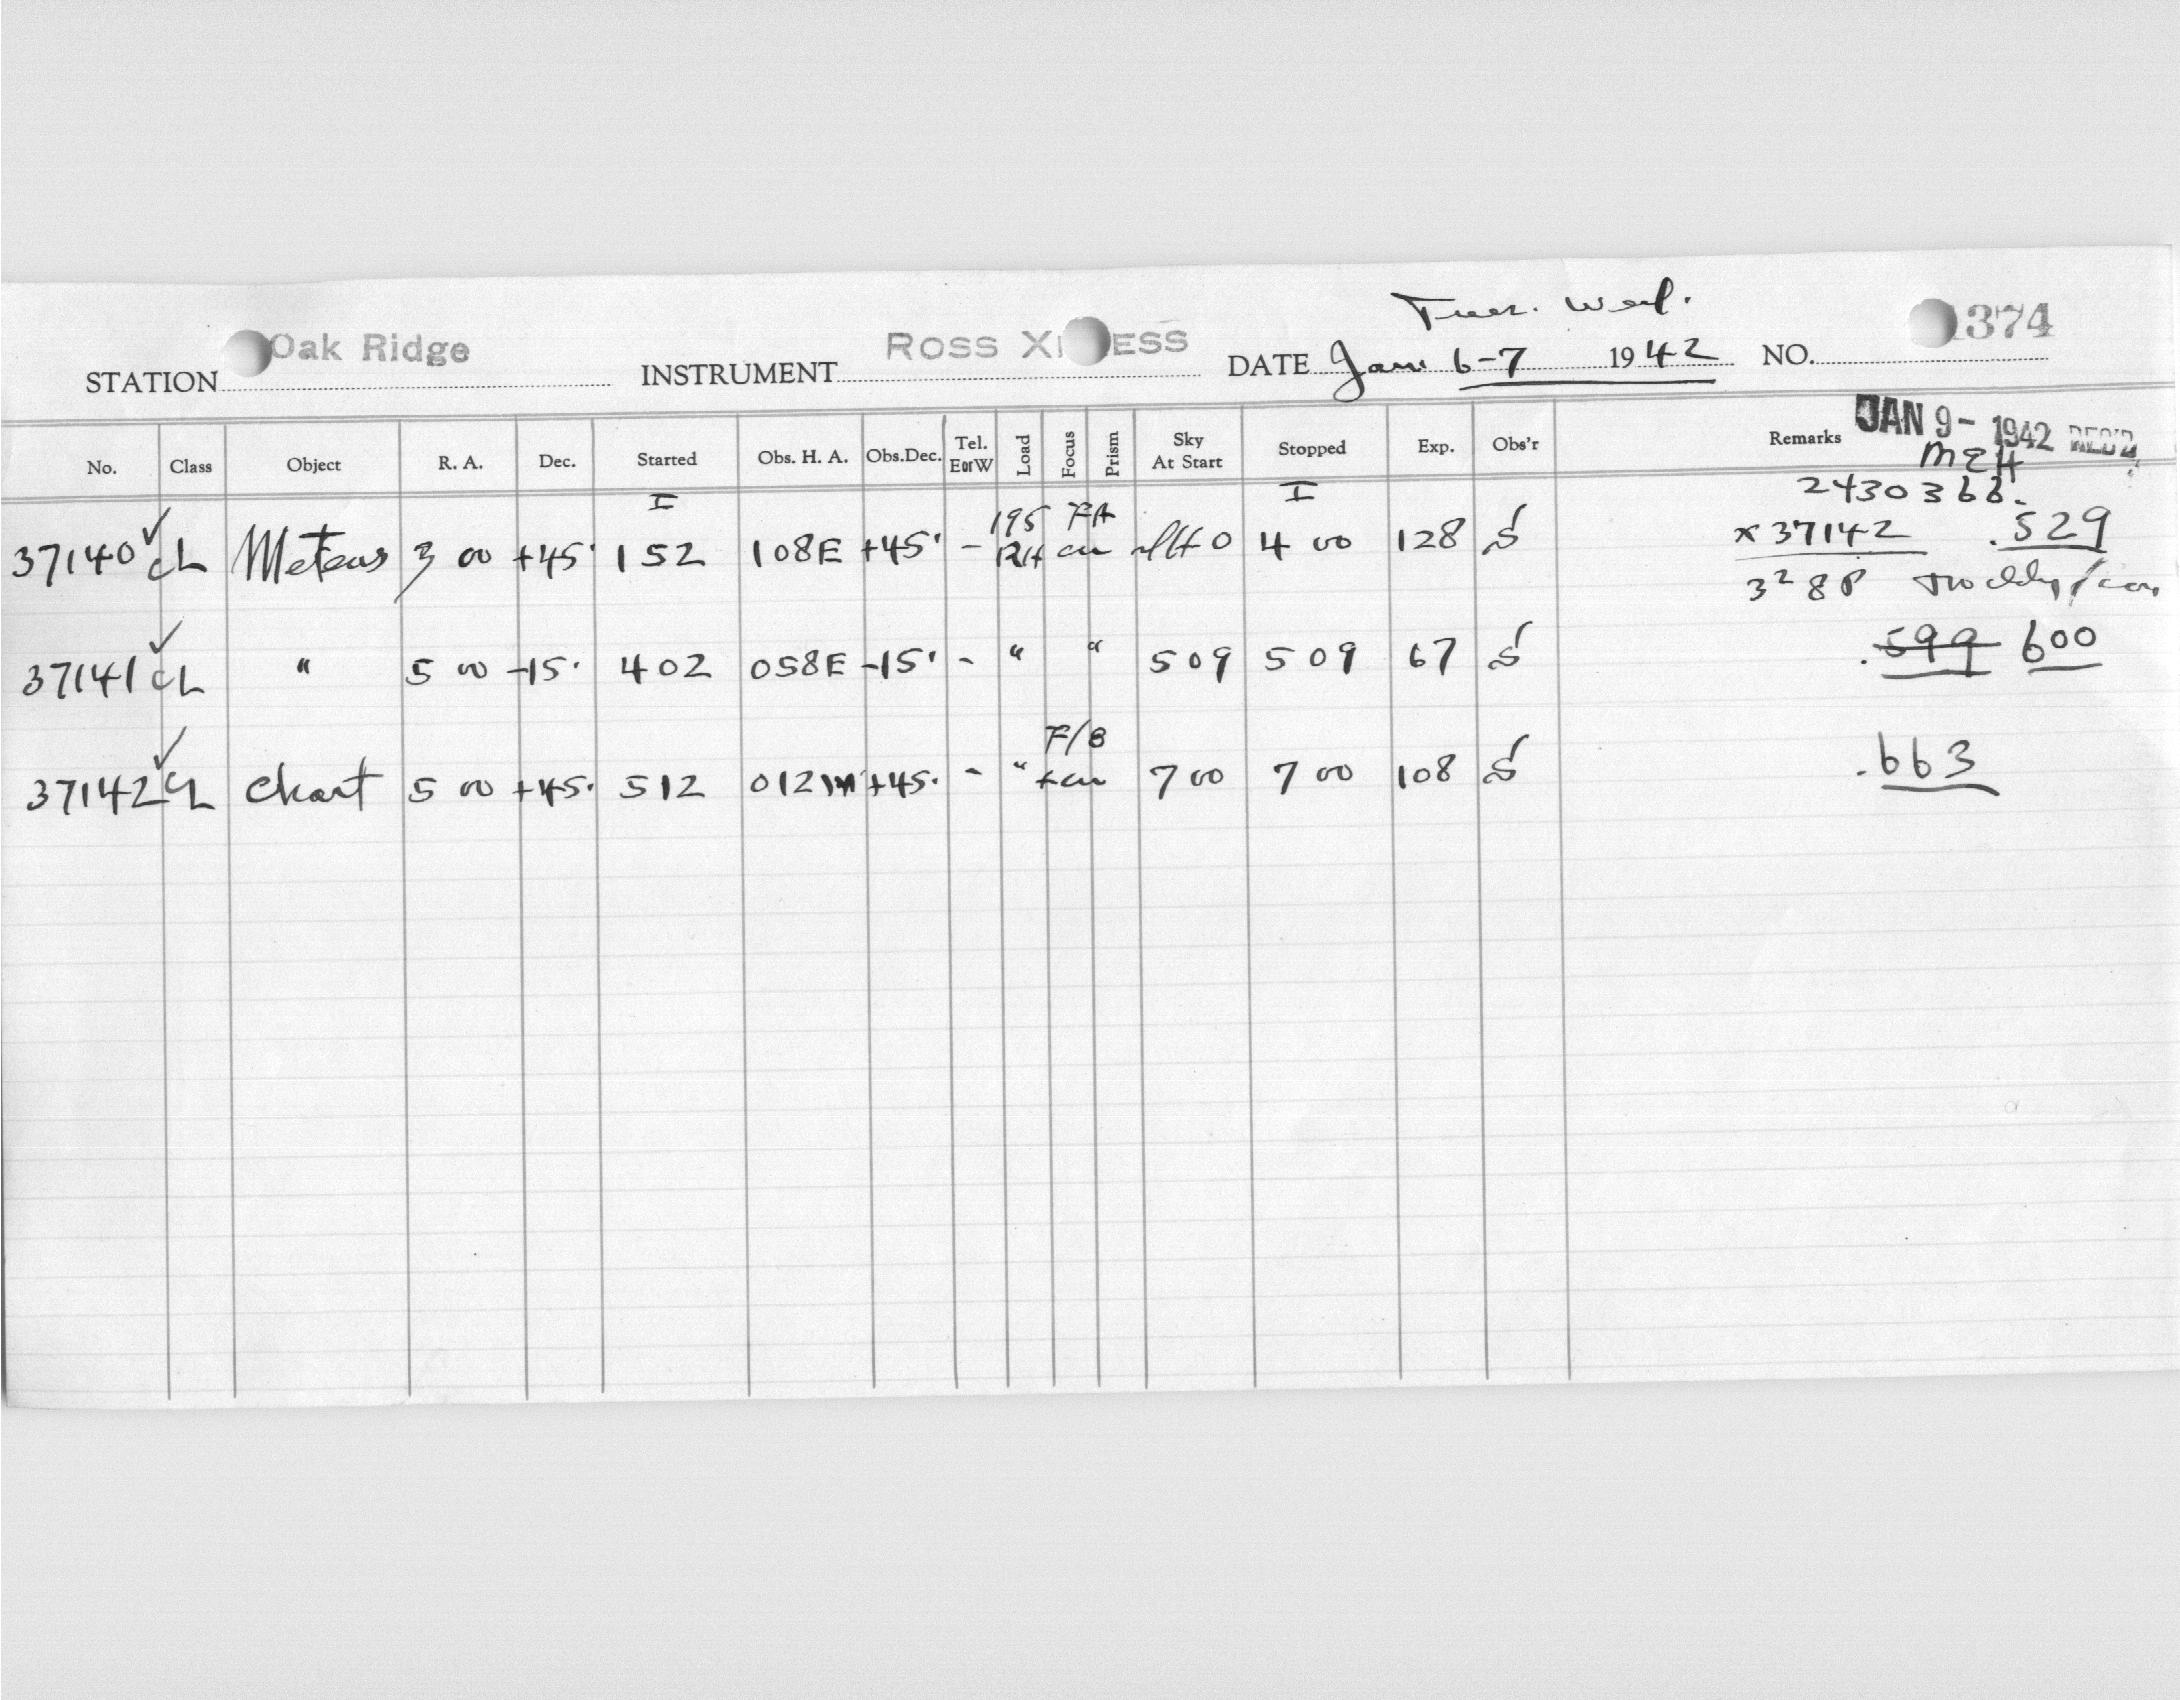 Tues. Wed.
STATION Oak Ridge INSTRUMENT ROSS ESS DATE Jan. 6-7 1942 NO. 374
No. Class Object R. A. Dec. Started Obs. H. A. Obs.Dec. Tel. EorW Load Focus Prism Sky At Start Stopped Exp. Obs'r Remarks JAN 9 - 1942 REC'D
MEH
I I 2430366.
37140 ✓ CL Meteors 3 00 +45° 1 52 1 08E +45° - 195 RH FA 4 00 128 S x 37142 .529
3288
37141 ✓ CL " 5 00 -15° 4 02 0 58E -15° - " " 5 09 5 09 67 S .599 600
37142 ✓ CL Chart 5 00 +45° 5 12 0 12W +45° - " F/8 7 00 7 00 108 S .663